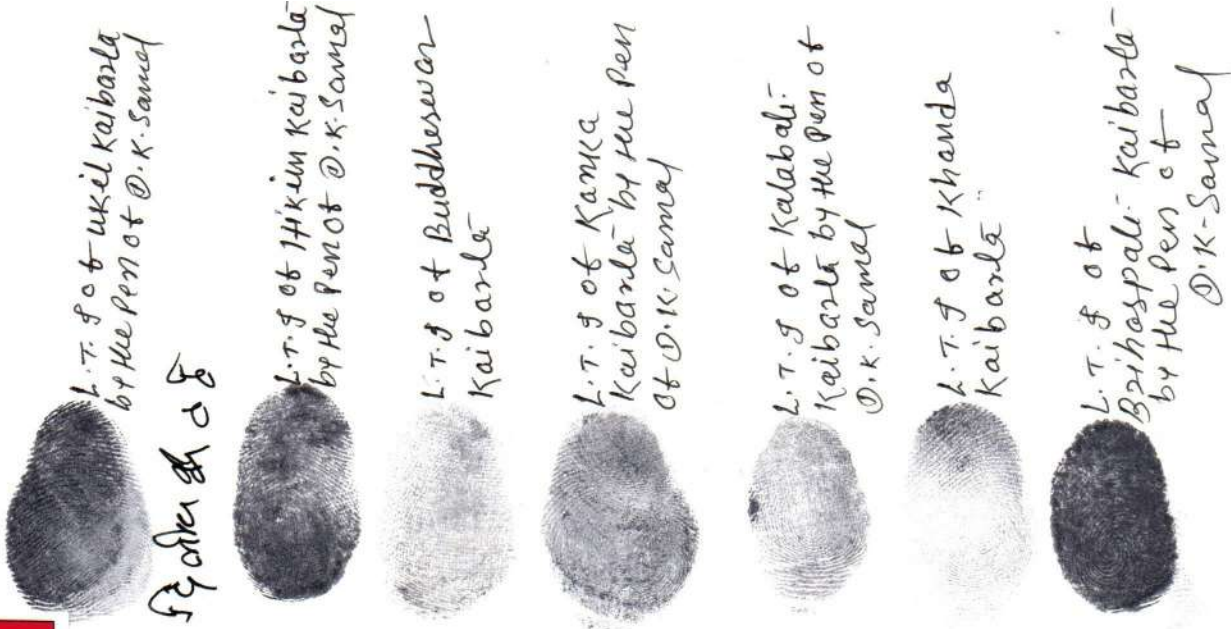 L.T.I of Ukil Kaibarta
by the Pen of D.K. Samal
L.T.I of Hikim Kaibarta
by the Pen of D.K. Samal
L.T.I of Buddheswar
Kaibarta
L.T.I of Kanka
Kaibarta by the Pen
of D.K. Samal
L.T.I of Kalabati
Kaibarta by the Pen of
D.K. Samal
L.T.I of Khanda
Kaibarta
L.T.I of
Brihospati Kaibarta
by the Pen of
D.K-Samal